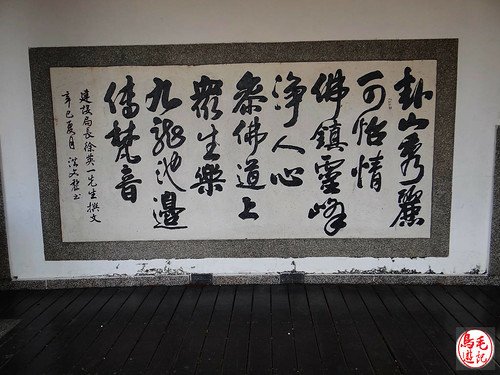 卦山秀麗
可怡情
佛鎮靈峰
淨人心
參佛道上
眾生樂
九龍池邊
傳梵音
建設局長徐英一先生撰文
辛巳夏月 洪文書
鳥毛
遊記